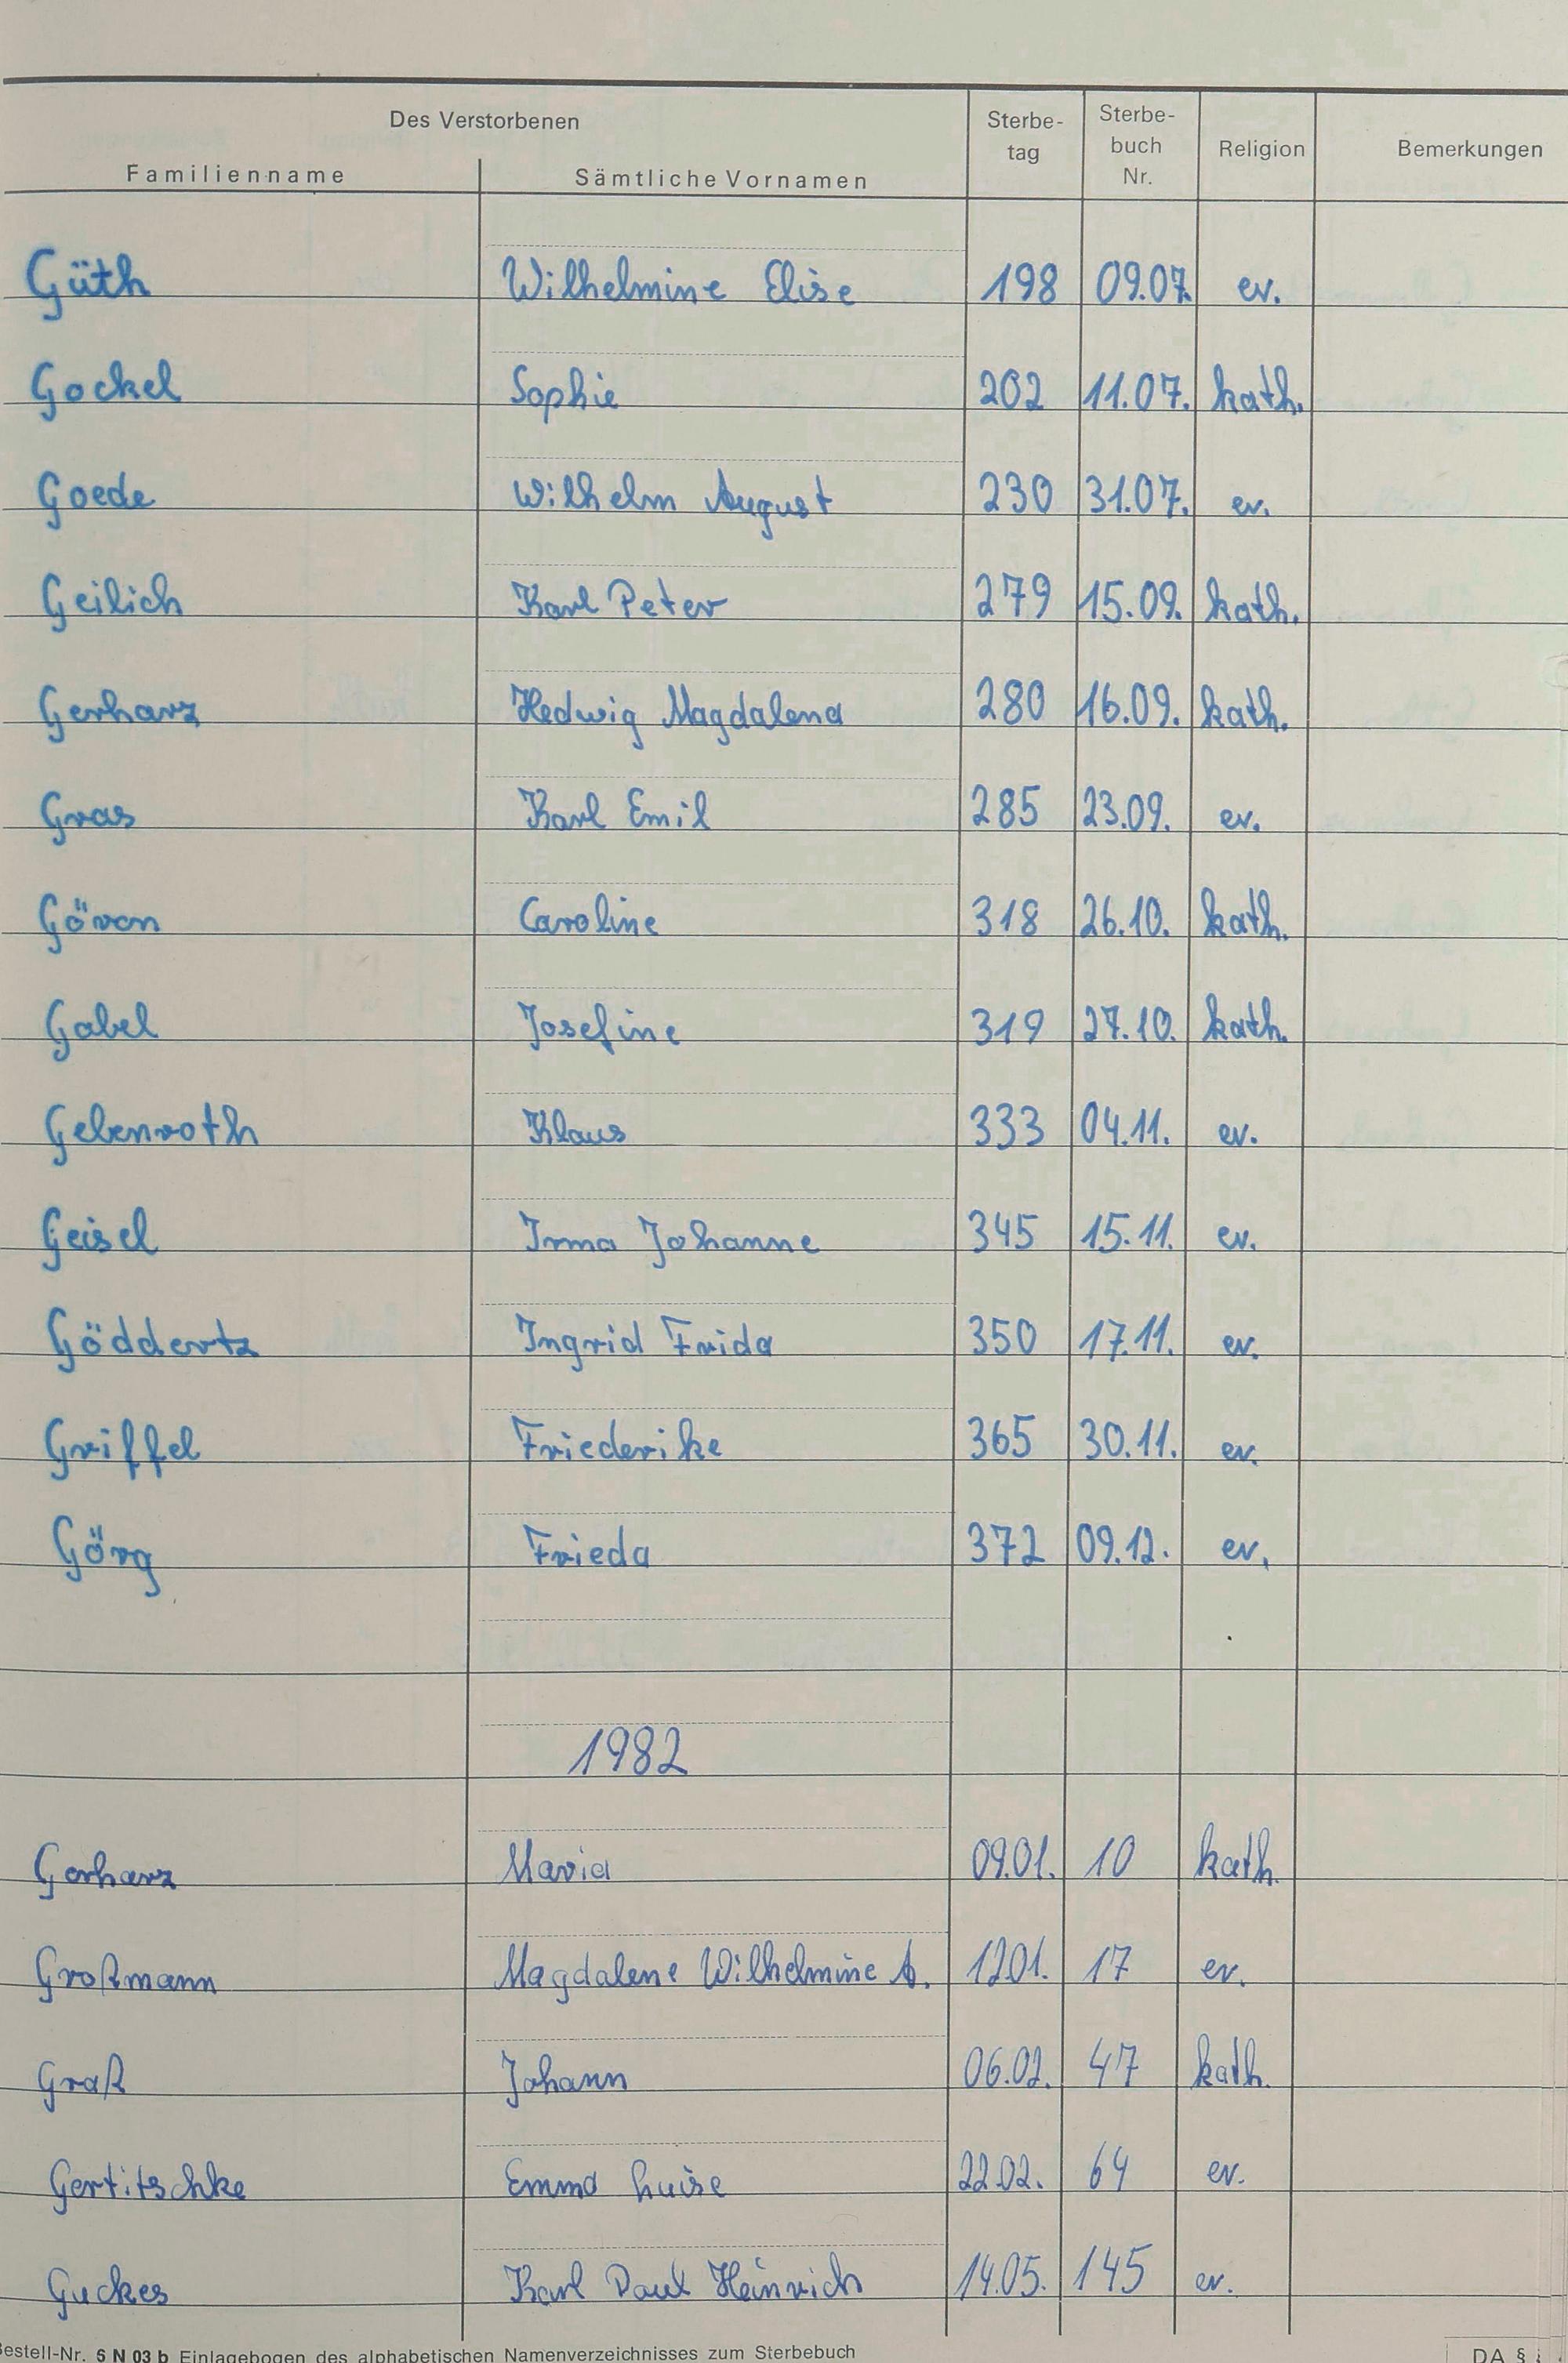 Des Verstorbenen
Familienname Sämtliche Vornamen Sterbe-tag Sterbe-buch Nr. Religion Bemerkungen
Güth Wilhelmine Elise 198 09.07. ev.
Gockel Sophie 202 11.07. kath.
Goede Wilhelm August 230 31.07. ev.
Geilich Karl Peter 279 15.09. kath.
Gerharz Hedwig Magdalena 280 16.09. kath.
Gras Karl Emil 285 23.09. ev.
Caroline 318 26.10. kath.
Gabel Josefine 319 27.10. kath.
Gebenroth Klaus 333 04.11. ev.
Geisel Irma Johanne 345 15.11. ev.
Göddertz Ingrid Frida 350 17.11. ev.
Griffel Friederike 365 30.11. ev.
Görg Frieda 372 09.12. ev.
1982
Gerharz Maria 09.01. 10 kath.
Großmann Magdalene Wilhelmine A. 12.01. 17 ev.
Graß Johann 06.02. 47 kath.
Gertitschke Emma Luise 22.02. 64 ev.
Guckes Karl Paul Heinrich 14.05. 145 ev.
Bestell-Nr. 6 N 03 b Einlagebogen des alphabetischen Namenverzeichnisses zum Sterbebuch DA §